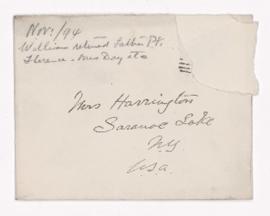 Nov:/94
William retired Father Pt.
Florence - Mrs Day etc
Mrs Harrington
Saranac Lake
N.Y.
U.S.A.